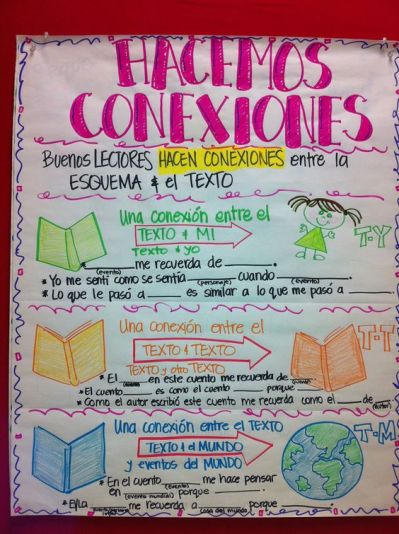 HACEMOS
CONEXIONES
Buenos LECTORES HACEN CONEXIONES entre la
ESQUEMA & el TEXTO
Una conexión entre el
TEXTO & MI
TEXTO & yo
T-Y
* ______ me recuerda de ______.
(evento)
* Yo me sentí como se sentía ______ cuando ______.
(personaje) (evento)
* Lo que le pasó a ____ es similar a lo que me pasó a ____.
Una conexión entre el
TEXTO & TEXTO
TEXTO y otro TEXTO
T-T
* El ____ en este cuento me recuerda de ____
* El cuento ____ es como el cuento ____ porque ____.
* Como el autor escribió este cuento me recuerda como el ____ de ____
(autor)
Una conexión entre el TEXTO
TEXTO & el MUNDO
y eventos del MUNDO
T-M
* En el cuento ______ me hace pensar
en ______ porque ______.
(evento mundial)
* El/la ______ me recuerda a ______ porque ______.
(cosa del mundo)